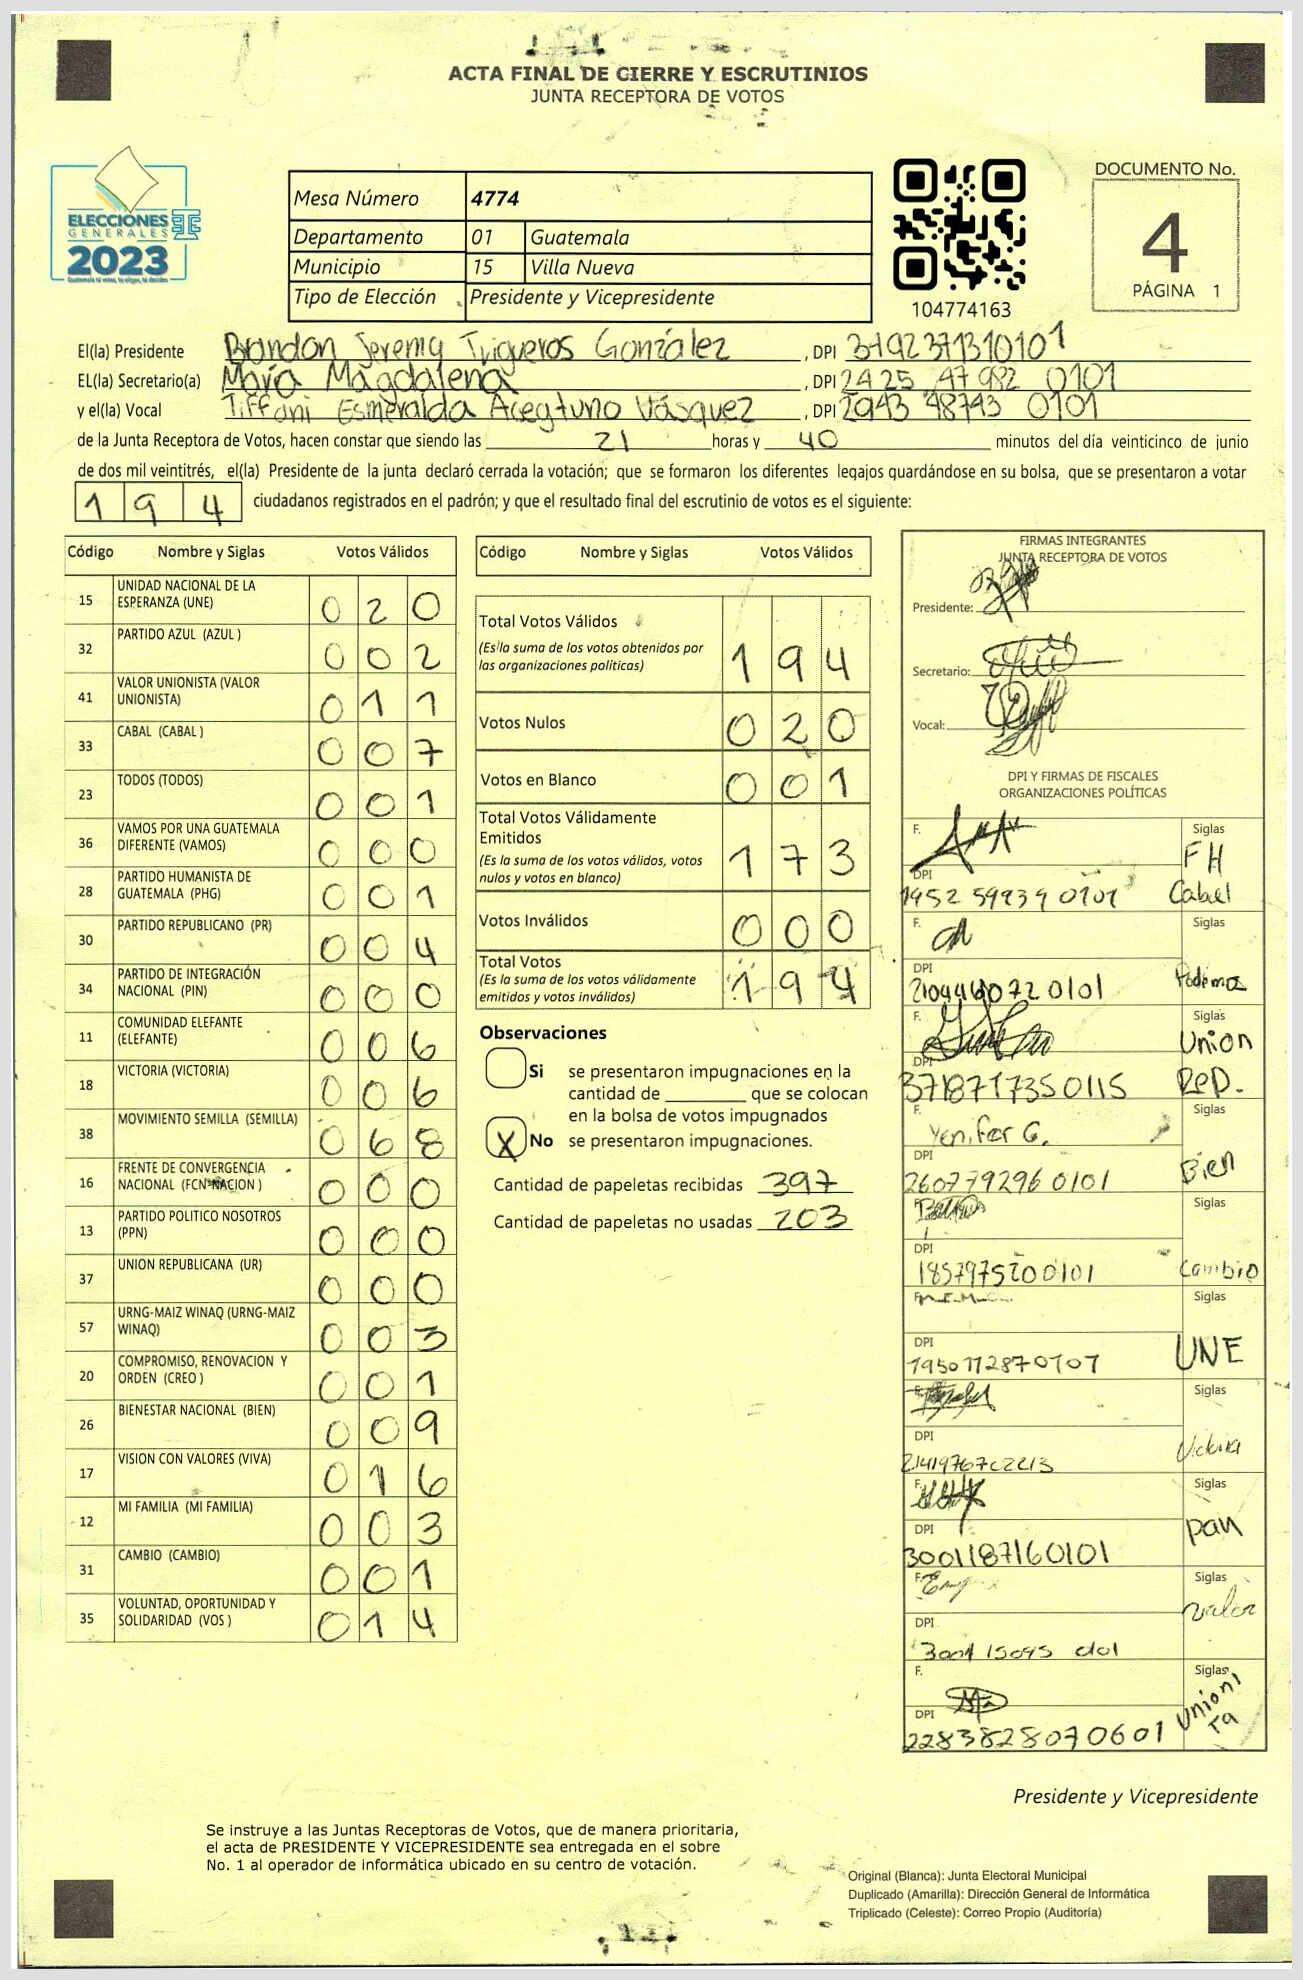 ACTA FINAL DE CIERRE Y ESCRUTINIOS
JUNTA RECEPTORA DE VOTOS
ELECCIONES
GENERALES
2023
Mesa Número 4774
Departamento 01 Guatemala
Municipio 15 Villa Nueva
Tipo de Elección Presidente y Vicepresidente
104774163
DOCUMENTO No.
4
PÁGINA 1
El(la) Presidente Brandon Jeremy Trigueros González , DPI 3792371310101
EL(la) Secretario(a) María Magdalena , DPI 2425 47982 0101
y el(la) Vocal Tiffani Esmeralda Acegtuno Vásquez , DPI 2943 48743 0101
de la Junta Receptora de Votos, hacen constar que siendo las 21 horas y 40 minutos del día veinticinco de junio
de dos mil veintitrés, el(la) Presidente de la junta declaró cerrada la votación; que se formaron los diferentes legajos guardándose en su bolsa, que se presentaron a votar
194 ciudadanos registrados en el padrón; y que el resultado final del escrutinio de votos es el siguiente:
Código Nombre y Siglas Votos Válidos
15 UNIDAD NACIONAL DE LA ESPERANZA (UNE) 020
32 PARTIDO AZUL (AZUL ) 002
41 VALOR UNIONISTA (VALOR UNIONISTA) 011
33 CABAL (CABAL ) 007
23 TODOS (TODOS) 001
36 VAMOS POR UNA GUATEMALA DIFERENTE (VAMOS) 000
28 PARTIDO HUMANISTA DE GUATEMALA (PHG) 001
30 PARTIDO REPUBLICANO (PR) 004
34 PARTIDO DE INTEGRACIÓN NACIONAL (PIN) 000
11 COMUNIDAD ELEFANTE (ELEFANTE) 006
18 VICTORIA (VICTORIA) 006
38 MOVIMIENTO SEMILLA (SEMILLA) 068
16 FRENTE DE CONVERGENCIA NACIONAL (FCN-NACION ) 000
13 PARTIDO POLITICO NOSOTROS (PPN) 000
37 UNION REPUBLICANA (UR) 000
57 URNG-MAIZ WINAQ (URNG-MAIZ WINAQ) 003
20 COMPROMISO, RENOVACION Y ORDEN (CREO ) 001
26 BIENESTAR NACIONAL (BIEN) 009
17 VISION CON VALORES (VIVA) 016
12 MI FAMILIA (MI FAMILIA) 003
31 CAMBIO (CAMBIO) 001
35 VOLUNTAD, OPORTUNIDAD Y SOLIDARIDAD (VOS ) 014
Código Nombre y Siglas Votos Válidos
Total Votos Válidos 194
(Es la suma de los votos obtenidos por
las organizaciones políticas)
Votos Nulos 020
Votos en Blanco 001
Total Votos Válidamente
Emitidos 173
(Es la suma de los votos válidos, votos
nulos y votos en blanco)
Votos Inválidos 000
Total Votos 194
(Es la suma de los votos válidamente
emitidos y votos inválidos)
Observaciones
Si se presentaron impugnaciones en la
cantidad de ________ que se colocan
en la bolsa de votos impugnados
X No se presentaron impugnaciones.
Cantidad de papeletas recibidas 397
Cantidad de papeletas no usadas 203
FIRMAS INTEGRANTES
JUNTA RECEPTORA DE VOTOS
Presidente:
Secretario:
Vocal:
DPI Y FIRMAS DE FISCALES
ORGANIZACIONES POLÍTICAS
F. Siglas
FH
DPI
1952 59939 0101 Cabal
F. Siglas
DPI
2104460720101 Podemos
F. Siglas
Union
DPI
3718717350115 Rep.
F. Siglas
Yenifer G.
DPI Bien
260779296 0101
F. Siglas
DPI
1857975200101 Cambio
F. Siglas
DPI UNE
1950112870101
F. Siglas
DPI Victoria
F. Siglas
DPI pan
3001187160101
F. Siglas
valor
DPI
F. Siglas
DPI Unionista
2283828070601
Presidente y Vicepresidente
Se instruye a las Juntas Receptoras de Votos, que de manera prioritaria,
el acta de PRESIDENTE Y VICEPRESIDENTE sea entregada en el sobre
No. 1 al operador de informática ubicado en su centro de votación.
Original (Blanca): Junta Electoral Municipal
Duplicado (Amarilla): Dirección General de Informática
Triplicado (Celeste): Correo Propio (Auditoría)